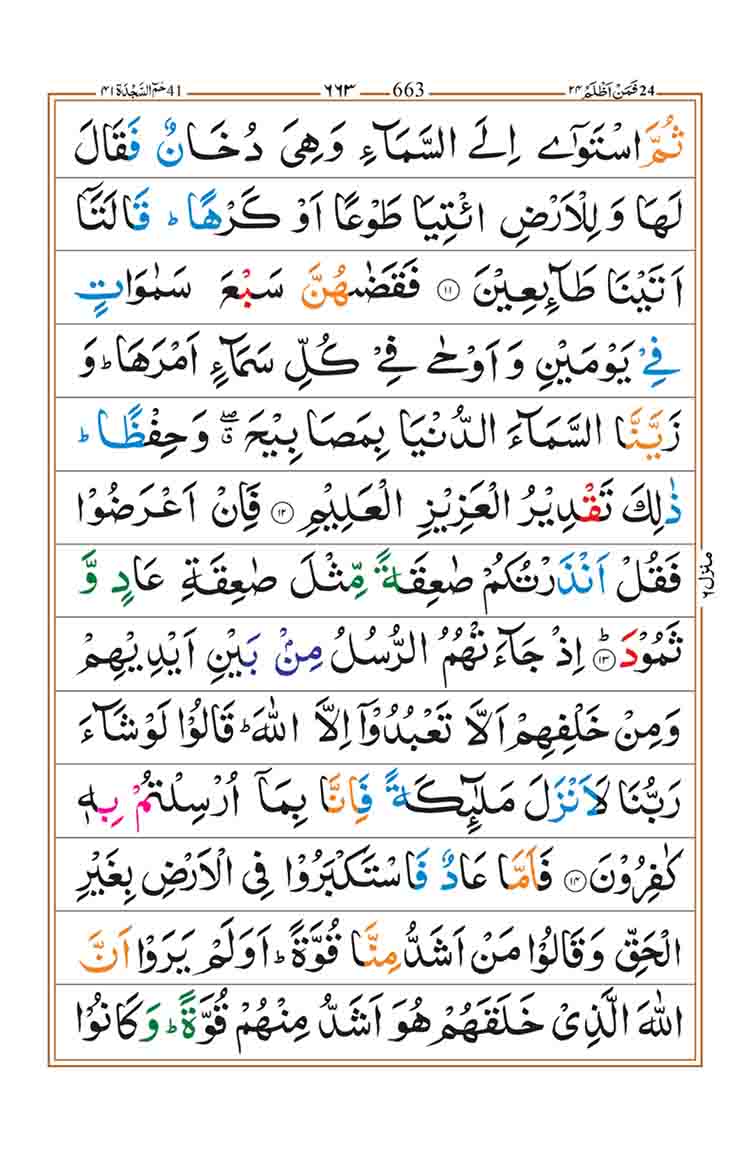 24 فَمَنْ اَظْلَمُ ٢٤ 663 ٦٦٣ 41 حٰمٓ السَّجْدَة ٤١
ثُمَّ اسْتَوٰۤى اِلَى السَّمَآءِ وَهِىَ دُخَانٌ فَقَالَ
لَهَا وَ لِلْاَرْضِ ائْتِيَا طَوْعًا اَوْ كَرْهًاؕ قَالَتَاۤ
اَتَيْنَا طَآٮِٕعِيْنَ ۝۱۱ فَقَضٰٮهُنَّ سَبْعَ سَمٰوَاتٍ
فِىْ يَوْمَيْنِ وَ اَوْحٰى فِىْ كُلِّ سَمَآءٍ اَمْرَهَاؕ وَ
زَيَّنَّا السَّمَآءَ الدُّنْيَا بِمَصَابِيْحَ ۖۗ وَ حِفْظًاؕ
ذٰلِكَ تَقْدِيْرُ الْعَزِيْزِ الْعَلِيْمِ ۝۱۲ فَاِنْ اَعْرَضُوْا
فَقُلْ اَنْذَرْتُكُمْ صٰعِقَةً مِّثْلَ صٰعِقَةِ عَادٍ وَّ
ثَمُوْدَؕ ۝۱۳ اِذْ جَآءَتْهُمُ الرُّسُلُ مِنْۢ بَيْنِ اَيْدِيْهِمْ
وَمِنْ خَلْفِهِمْ اَلَّا تَعْبُدُوْۤا اِلَّا اللّٰهَؕ قَالُوْا لَوْ شَآءَ
رَبُّنَا لَاَنْزَلَ مَلٰٓٮِٕكَةً فَاِنَّا بِمَاۤ اُرْسِلْتُمْ بِهٖ
كٰفِرُوْنَ ۝۱۴ فَاَمَّا عَادٌ فَاسْتَكْبَرُوْا فِى الْاَرْضِ بِغَيْرِ
الْحَقِّ وَقَالُوْا مَنْ اَشَدُّ مِنَّا قُوَّةًؕ اَوَلَمْ يَرَوْا اَنَّ
اللّٰهَ الَّذِىْ خَلَقَهُمْ هُوَ اَشَدُّ مِنْهُمْ قُوَّةًؕ وَكَانُوْا
منزل ٦